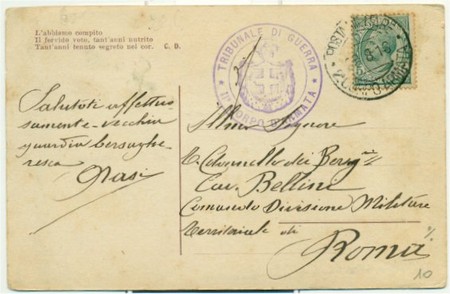 L'abbiamo compito
Il fervido voto, tant'anni nutrito
Tant'anni tenuto segreto nei cor. C. B.
TRIBUNALE DI GUERRA
CORPO D'ARMATA
POSTA MILITARE
Salutoti affettuo
samente - vecchia
guardia bersaglie
resca
Nasi
Ill.mo Signore
Colonnello dei Bers.ri
Cav. Bellini
Comando Divisione Militare
Territoriale di
Roma
10